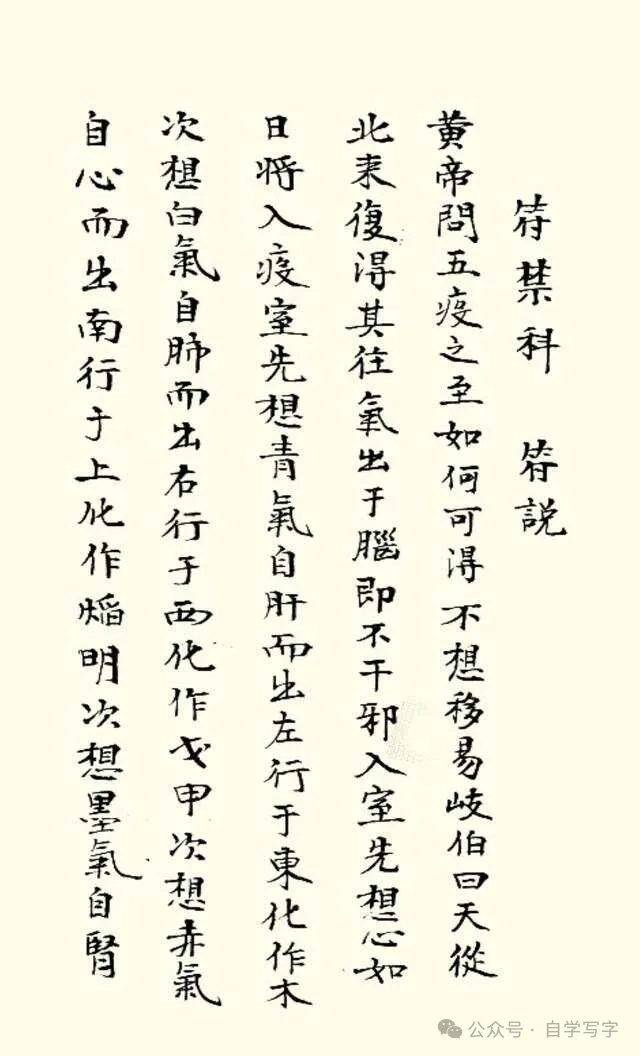 符禁科 符説
黄帝問五疫之至如何可得不想移易岐伯曰天從
北来復得其往氣出于腦即不干邪入室先想心如
日將入疫室先想青氣自肝而出左行于東化作木
次想白氣自肺而出右行于西化作戈甲次想赤氣
自心而出南行于上化作焰明次想墨氣自腎
公众号·自学写字